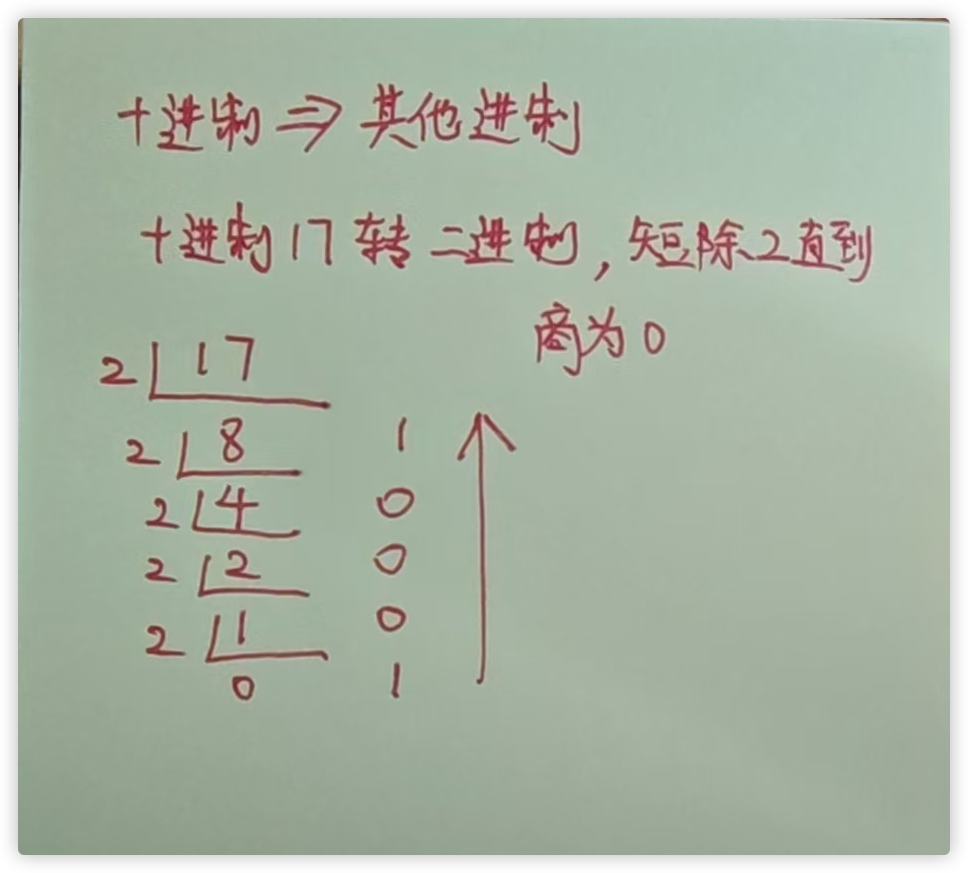 十进制 ⇒ 其他进制
十进制17转二进制,短除2直到
商为0
2 17
2 8 1
2 4 0
2 2 0
2 1 0
0 1